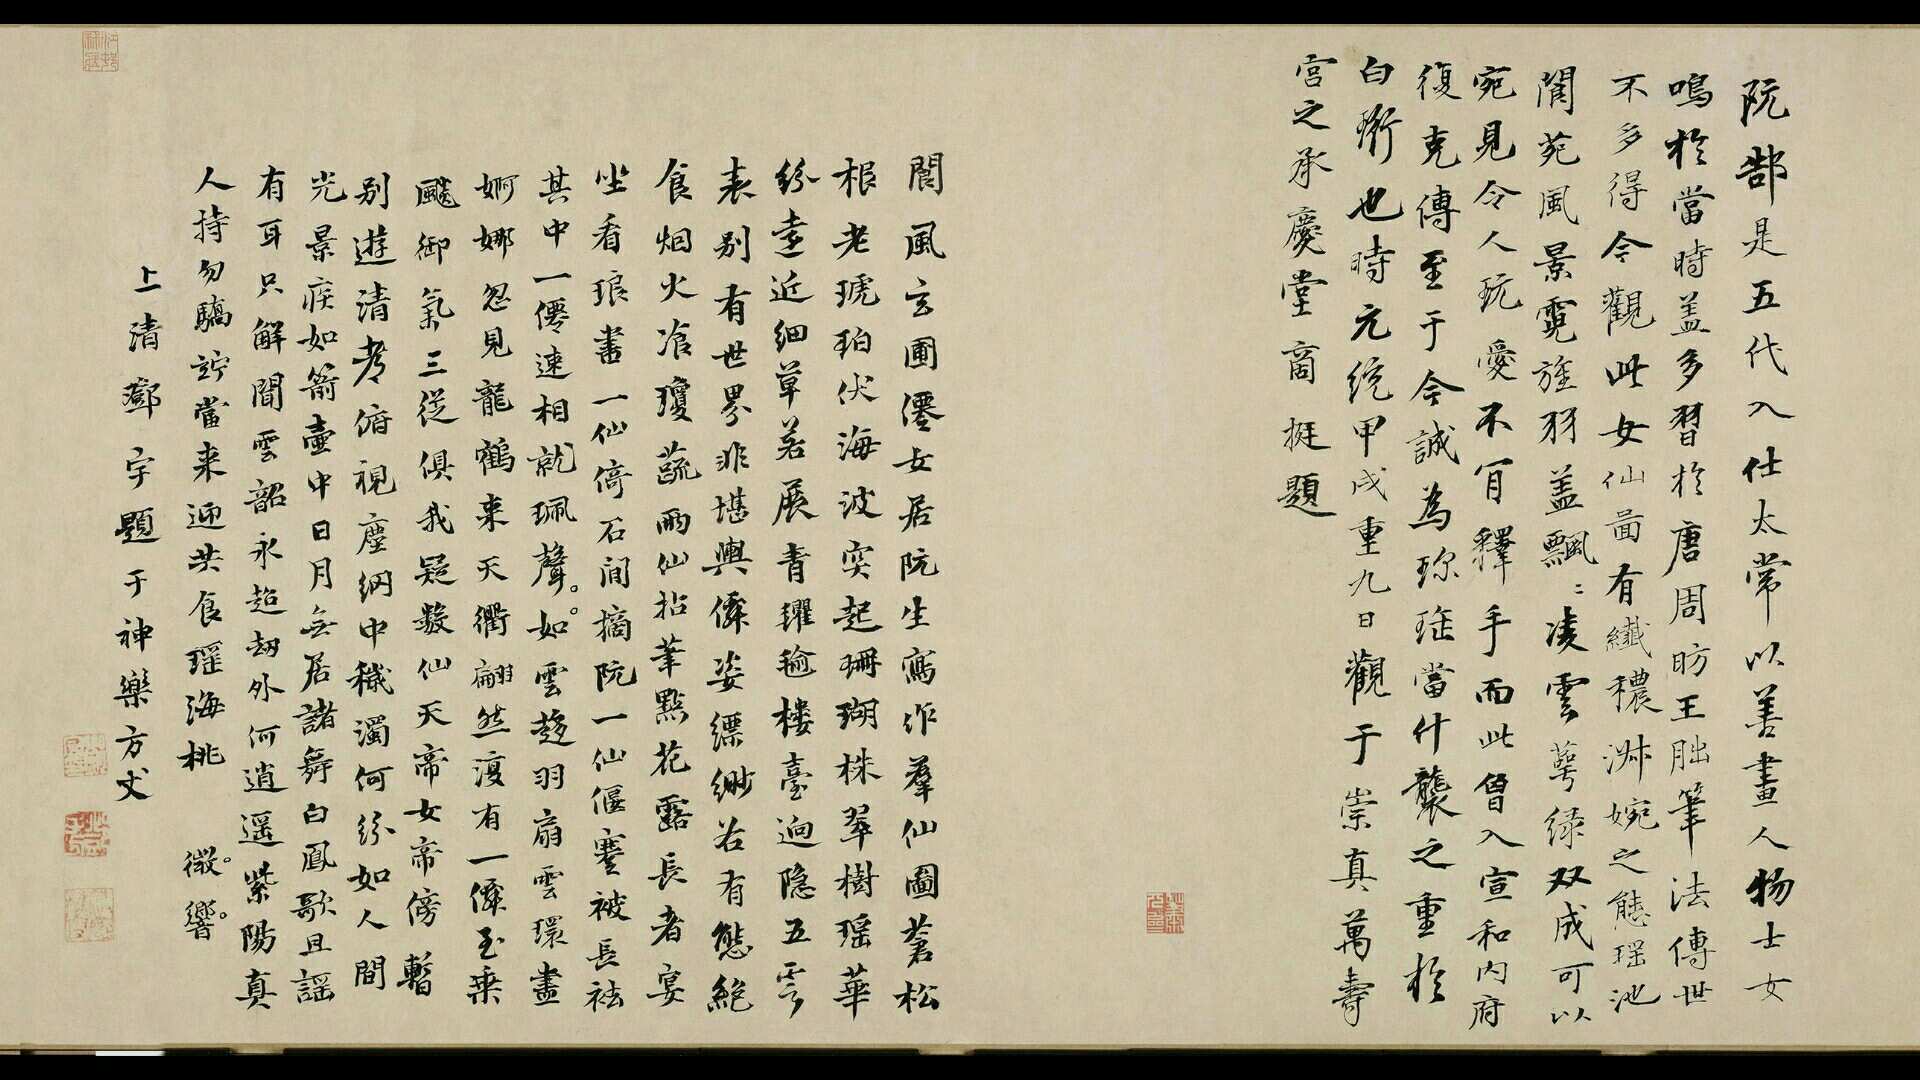 阮郜是五代入仕太常以善畫人物士女
鳴於當時蓋多習於唐周昉王朏筆法傳世
不多得今觀此女仙啚有纖穠淋婉之態瑶池
閬苑風景霓旌羽蓋飄〻凌雲萼緑双成可以
宛見令人玩愛不肎釋手而此曾入宣和内府
復克傳至于今誠為珎瑶當什襲之重於
白珩也時元統甲戌重九日觀于崇真萬壽
宫之承慶堂商挺題
閬風玄圃僊女居阮生寫作羣仙圖蒼松
根老琥珀伏海波突起珊瑚株翠樹瑶華
紛遠近細草若展青氍毹樓臺迥隐五雲
表别有世界非堪輿僊姿縹緲各有態絶
食烟火飡瓊蔬兩仙拈筆點花露長者宴
坐看琅書一仙倚石間摘阮一仙偃蹇被長祛
其中一僊速相就珮聲如雲趍羽扇雲環盡
婀娜忽見龍鶴来天衢翩然復有一僊至乗
飈御氣三従俱我疑數仙天帝女帝傍暫
别遊清考俯視塵網中穢濁何紛如人間
光景疾如箭壷中日月無居諸舞白鳳歌且謡
有耳只解聞雲韶永超劫外何逍遥紫陽真
人持勿驕䛊當来迎共食瑶海桃 徵響
上清鄧宇題于神樂方丈